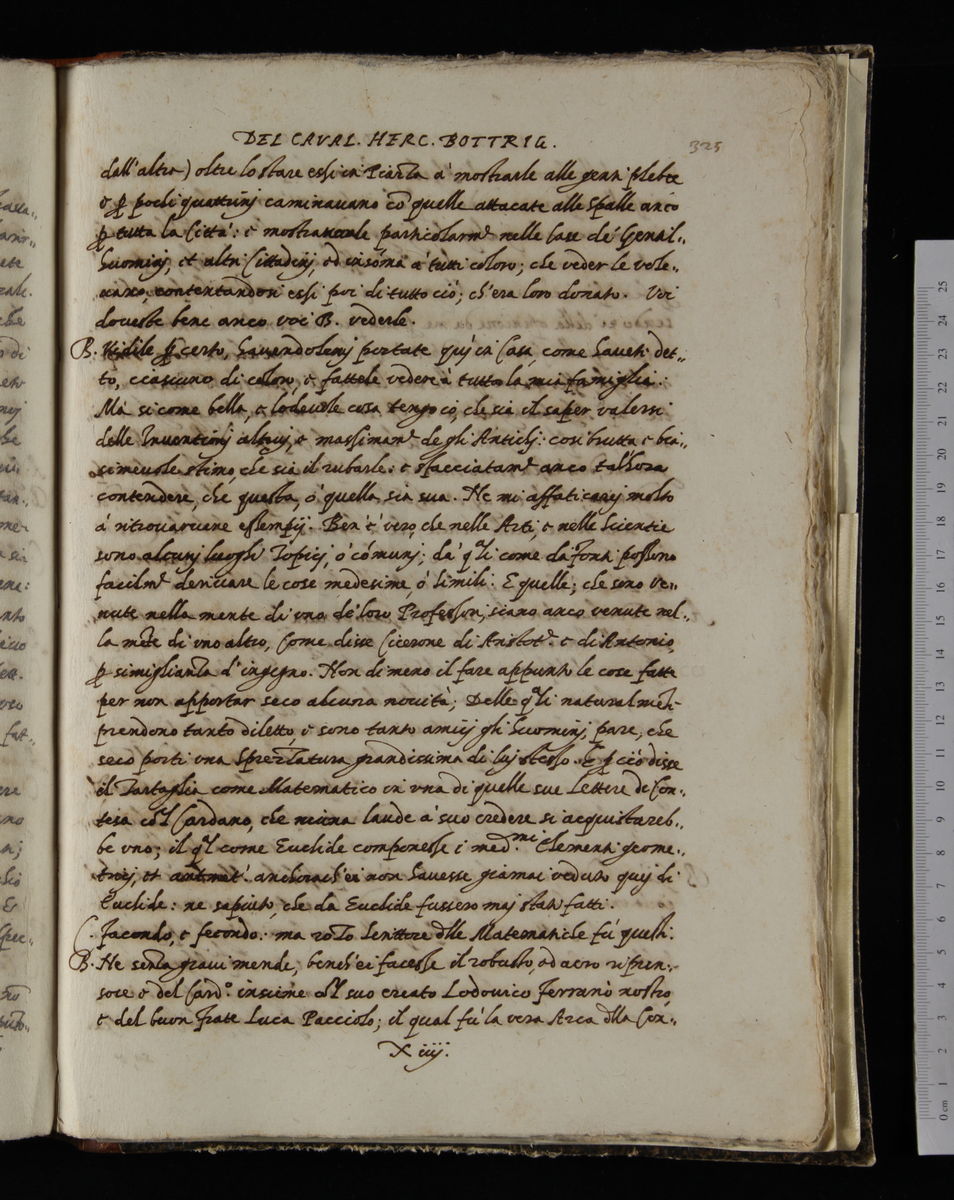 DEL CAVAL. HERC. BOTTRIG.
325
dall'altro) oltre lo stare essi in Piazza à mostrarle alle genti plebee
ò ꝑ pochi quattrinj caminavano cõ quelle attacate alle spalle anco
ꝑ tutta la Città: è mostravanle particolarmᵉ nelle case de' Gentil-
huominj, et altri Cittadinj, ed in sõma à tutti coloro; che veder le vole-
vano, contentandosi essi poi di tutto ciò; ch'era loro donato. Voi
doveste bene anco voi B. vederle.
B. Vidile ꝑ certo, havendolemj portate quj in Casa come haveti det-
to, ciascuno di coloro, è fattele vedere à tutta la mia famiglia.
Mà si come bella, è lodevole cosa tengo io, che sia il saper valersi
delle Inventionj altruj, è massimamᵉ de gli Antichj: così brutta è bia-
simevole stimo, che sia il rubarle: è sfacciatamᵉ anco tal'hora
contendere, che questa, ò quella sia sua. Ne mi affaticarej molto
à ritrovarvene essempij. Ben è vero, che nelle Arti, è nelle Scientie
sono alcunj luoghi Topicj, ò cõmunj; da' q̃li come da fonti possono
facilmᵉ derivare le cose medesime, ò simili. E quelle; che sono ve-
nute nella mente di uno de' loro Professori, siano anco venute nel-
la mẽte di uno altro, Come disse Cicerone di Aristotᵉ. è di Antonio,
ꝑ simiglianza d'ingegno. Non di meno il fare appunto le cose fatte
per non apportar seco alcuna novità; Delle q̃li naturalmẽte
prendono tanto diletto, è sono tanto amicj gli huominj, pare, che
seco porti una sprezzatura grandissima di luj stesso. E ꝑ ciò disse
il Tartaglia come Matematico in una di quelle sue Lettere di Con-
tesa cõl Cardano, che niuna laude à suo credere si acquistareb-
be uno; il q̃l come Euclide componesse i med.ᵐⁱ Elementi geome-
tricj, et aritmetᶜⁱ. anchorach'ei non havesse giamai veduto quej di
Euclide: ne saputo, che da Euclide fussero maj stati fatti.
C. Facondo, è fecondo: ma rozo Scrittore dlle Matematiche fù questi.
B. Ne senza gravi mende, bench'ei facesse il robusto, ed acro ripren-
sore è del Cardº. insieme cõl suo creato Lodovico Ferrario nostro,
è del buon frate Luca Pacciolo; il qual fù la vera Arca dlla Con-
X iiij.